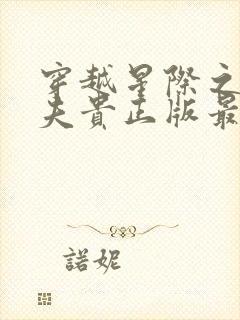 穿越星際之
夫貴正版最
諾妮